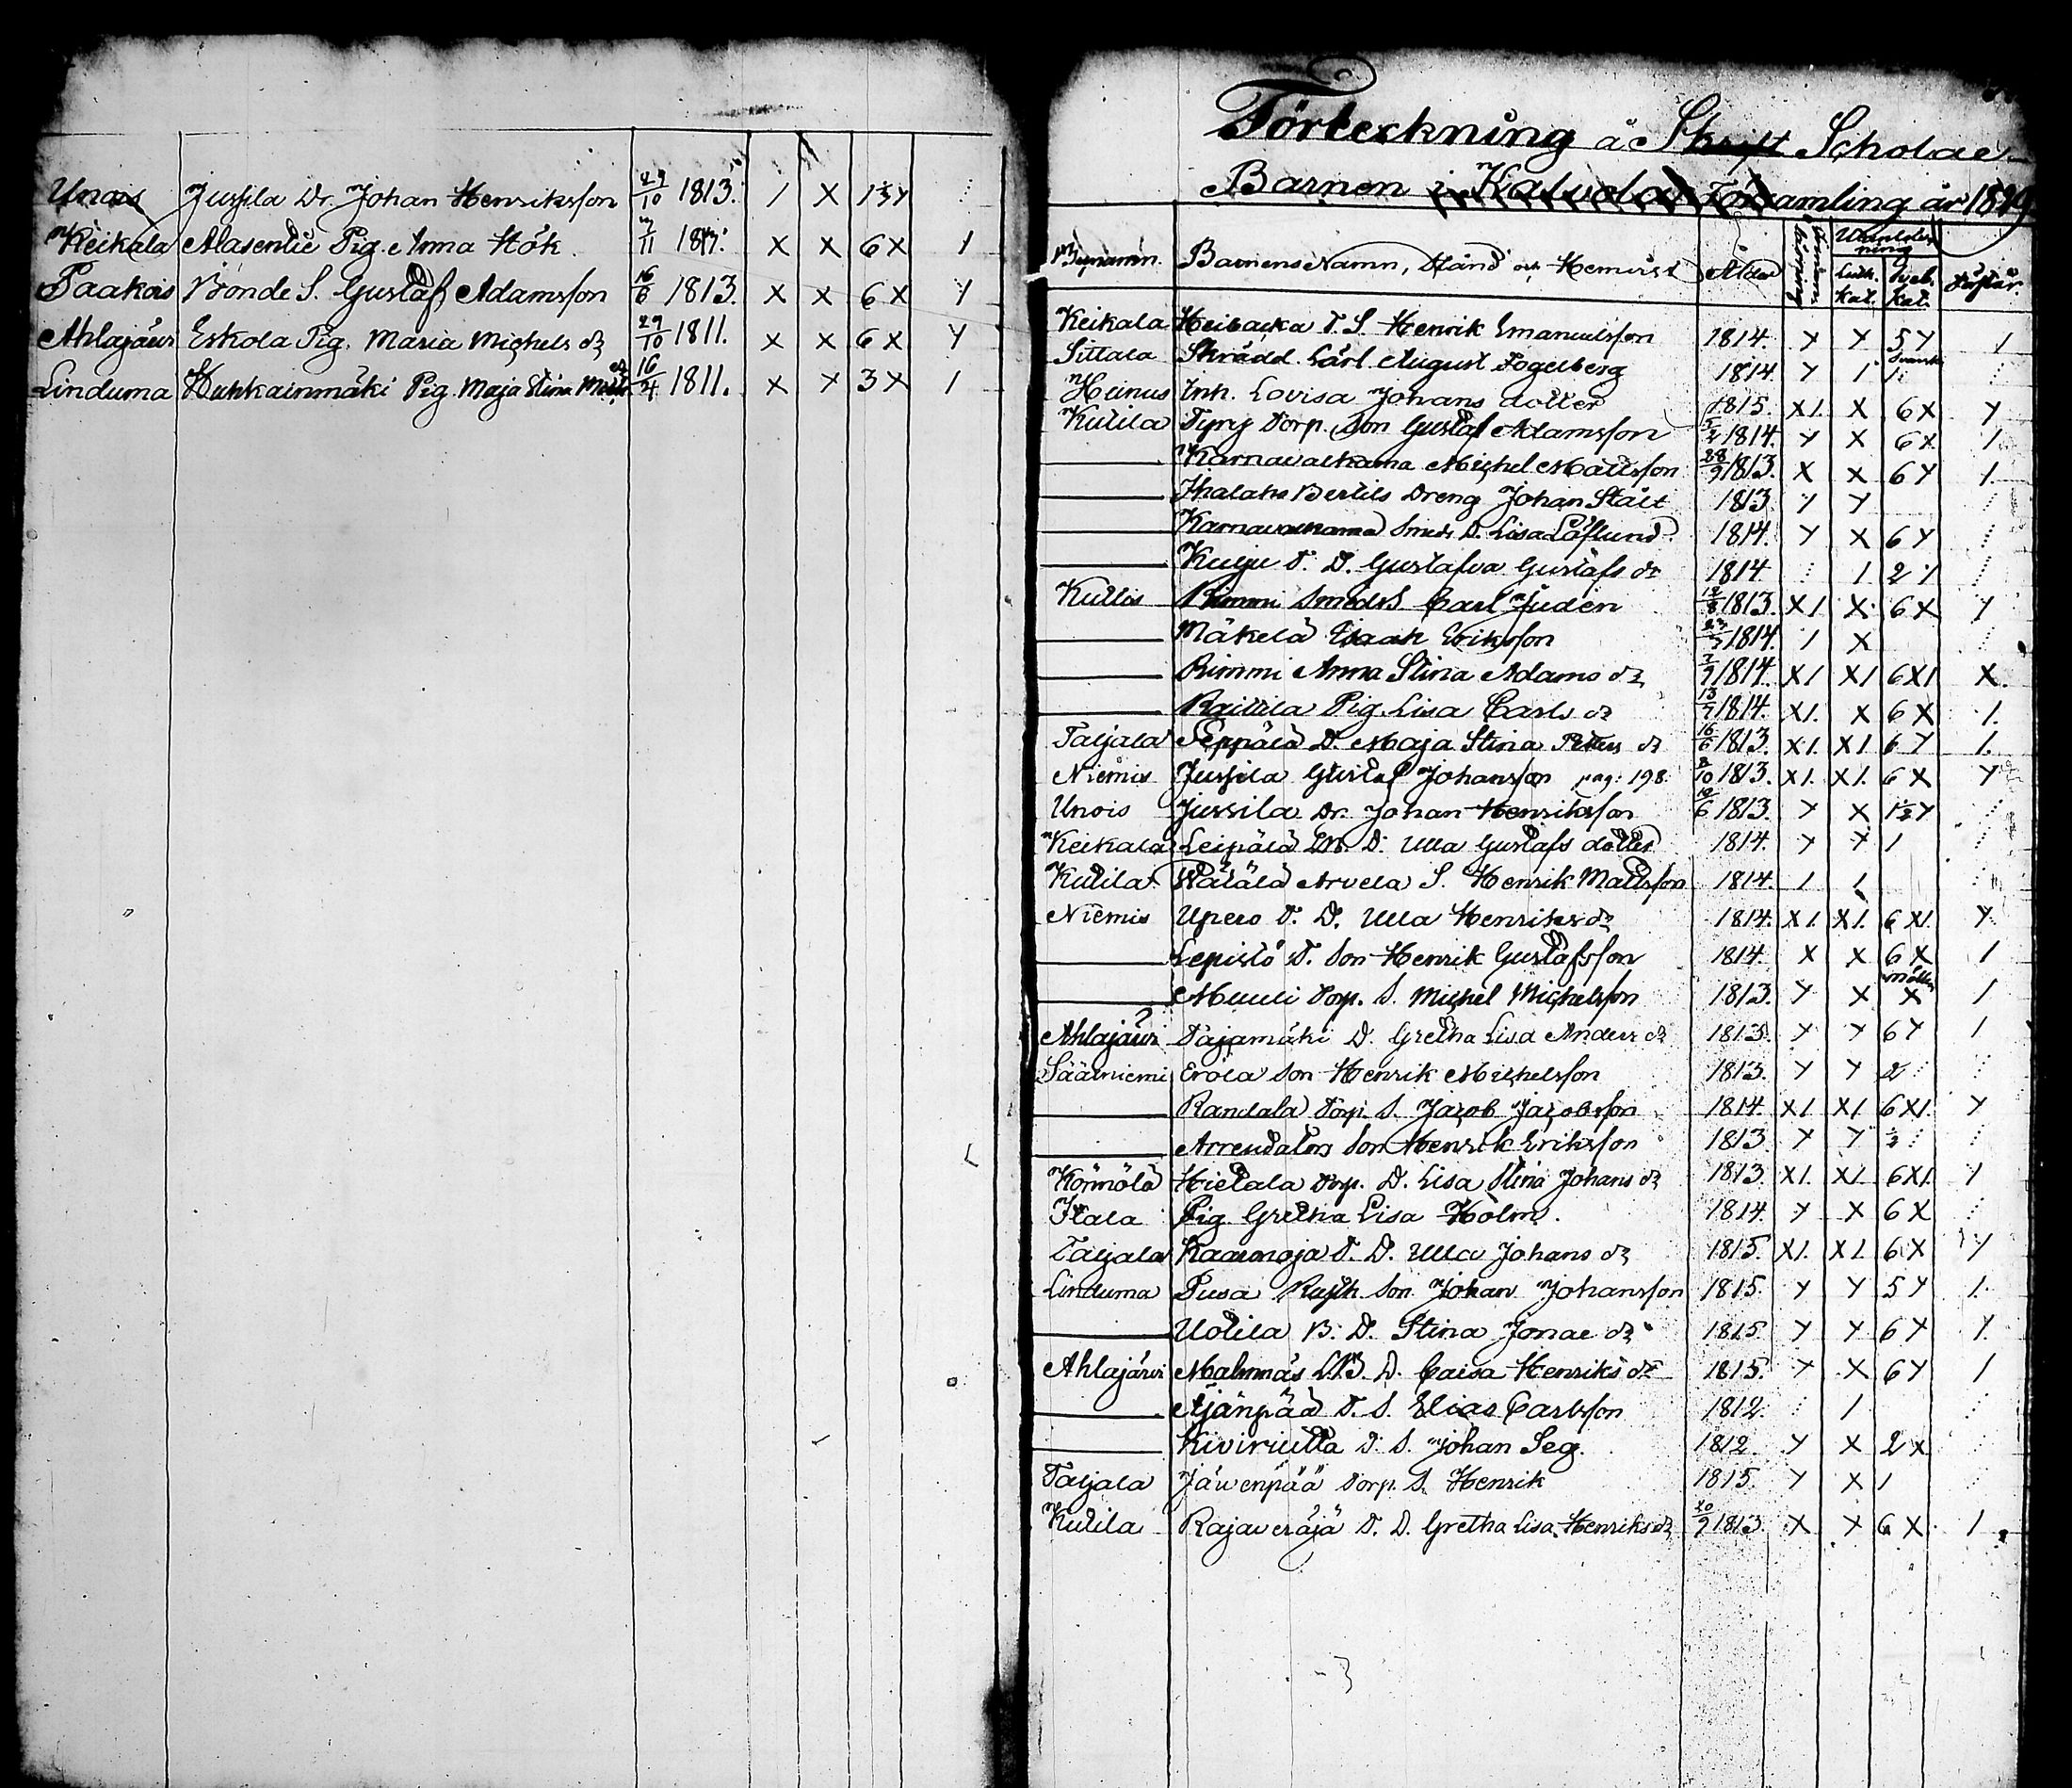 Unois Jussila Dr. Johan Henriksson 29/10 1813. / X 1½ Y
Keikala Alasentie Pig. Anna Hök 3/11 X X 6 X 1
Paakois Bonde S. Gustaf Adamsson 16/6 1813. X X 6 X Y
Ahlajärvi Eskola Pig. Maria Michels dr 29/10 1811. X X 6 X Y
Linduma Huhkainmäki Pig. Maja Stina Matts dr 16/4 1811. X Y 3 X 1
Förteckning å Skrift Scholae
Barnen i Kalvola Församling år 1829
Bynamn. Barnens Namn, Stånd och Hemvist Ålder Luth. Kat. Sveb. Kat.
Keikala Heikacka T. S. Henrik Emanuelsson 1814. Y Y 5 Y 1
Sittala Skrädd. Carl August Fogelberg 1814. Y 1 1
Heinus Inh. Lovisa Johans dotter 1815. X1. X 6 X Y
Kutila Tyry Torp. Son Gustaf Adamsson 5/2 1814. Y X 6 X. 1.
Karnavalkama Michel Mattsson 28/9 1813. X X 6 Y 1.
Bertils Dreng Johan Stålt 1813 Y Y
Karnavalkama Smeds D. Lisa Löflund 1814. Y X 6 Y
Kuuju T. D. Gustafva Gustafs dr 1814 1 2 1
Kutlis Rimmi Smeds S. Carl Juden 12/8 1813. X1. X. 6 X Y
Mäkelä Isaak Eriksson 1814. 1 X
Rimmi Anna Stina Adams dr 7/9 1814. X1 X1 6 X1 X.
Raittila Pig. Lisa Carls dr 13/7 1814. X1. X 6 X 1.
Taljala Seppälä D. Maja Stina Petters dr 16/6 1813. X1. X1 6 Y 1.
Niemis Jussila Gustaf Johansson pag: 198. 2/10 1813. X1. X1. 6 X Y
Unois Jussila Dr. Johan Henriksson 10/6 1813. Y X 1½ Y
Keikala Leipälä D. Ulla Gustafs dotter 1814. Y Y 1
Kutila Wälälä Arvela S. Henrik Mattsson 1814. 1 1
Niemis Upero T. D. Ulla Henriks dr 1814. X1. X1. 6 X1. Y
Lepistö T. Son Henrik Gustafsson 1814. X X 6 X 1
Muuli Torp. S. Michel Michelsson 1813. Y X X 1
Ahlajärvi Tajamäki D. Gretha Lisa Anders dr 1813. Y Y 6 Y 1
Sääxniemi Erola Son Henrik Michelsson 1813. Y Y 2
Randala Torp. S. Jacob Jacobsson 1814. X1. X1 6 X1. Y
Arrendators Son Henrik Eriksson 1813 Y Y ½
Körmölä Hietala Torp. D. Lisa Stina Johans dr 1813. X1. X1. 6 X1. 1
Itala Pig. Gretha Lisa Holm. 1814. Y X 6 X
Taljala Kaarnoja T. D. Ulla Johans dr 1815. X1. X1. 6 X Y
Linduma Pusa Son Johan Johansson 1815. Y Y 5 Y 1.
Uotila B. D. Stina Jonae dr 1815. Y Y 6 Y Y.
Ahlajärvi Malmnäs D. Caisa Henriks dr 1815. Y X 6 Y 1
Äjänpää T. S. Elias Carlsson 1812. 1
Kiviriutta T. S. Johan Seg. 1812. Y X 2 X
Taljala Jäwenpää Torp. S. Henrik 1815. Y X 1
Kutila Rajaveräjä T. D. Gretha Lisa Henriks dr 20/9 1813. X Y 6 X. 1.